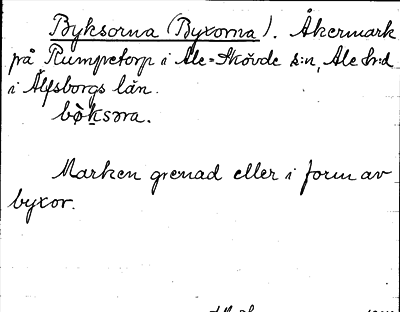 Byksorna (Byxorna). Åkermark
på Rumpetorp i Ale-Skövde s:n, Ale h:d
i Älfsborgs län.
bø̀ksəra.
Marken grenad eller i form av
byxor.